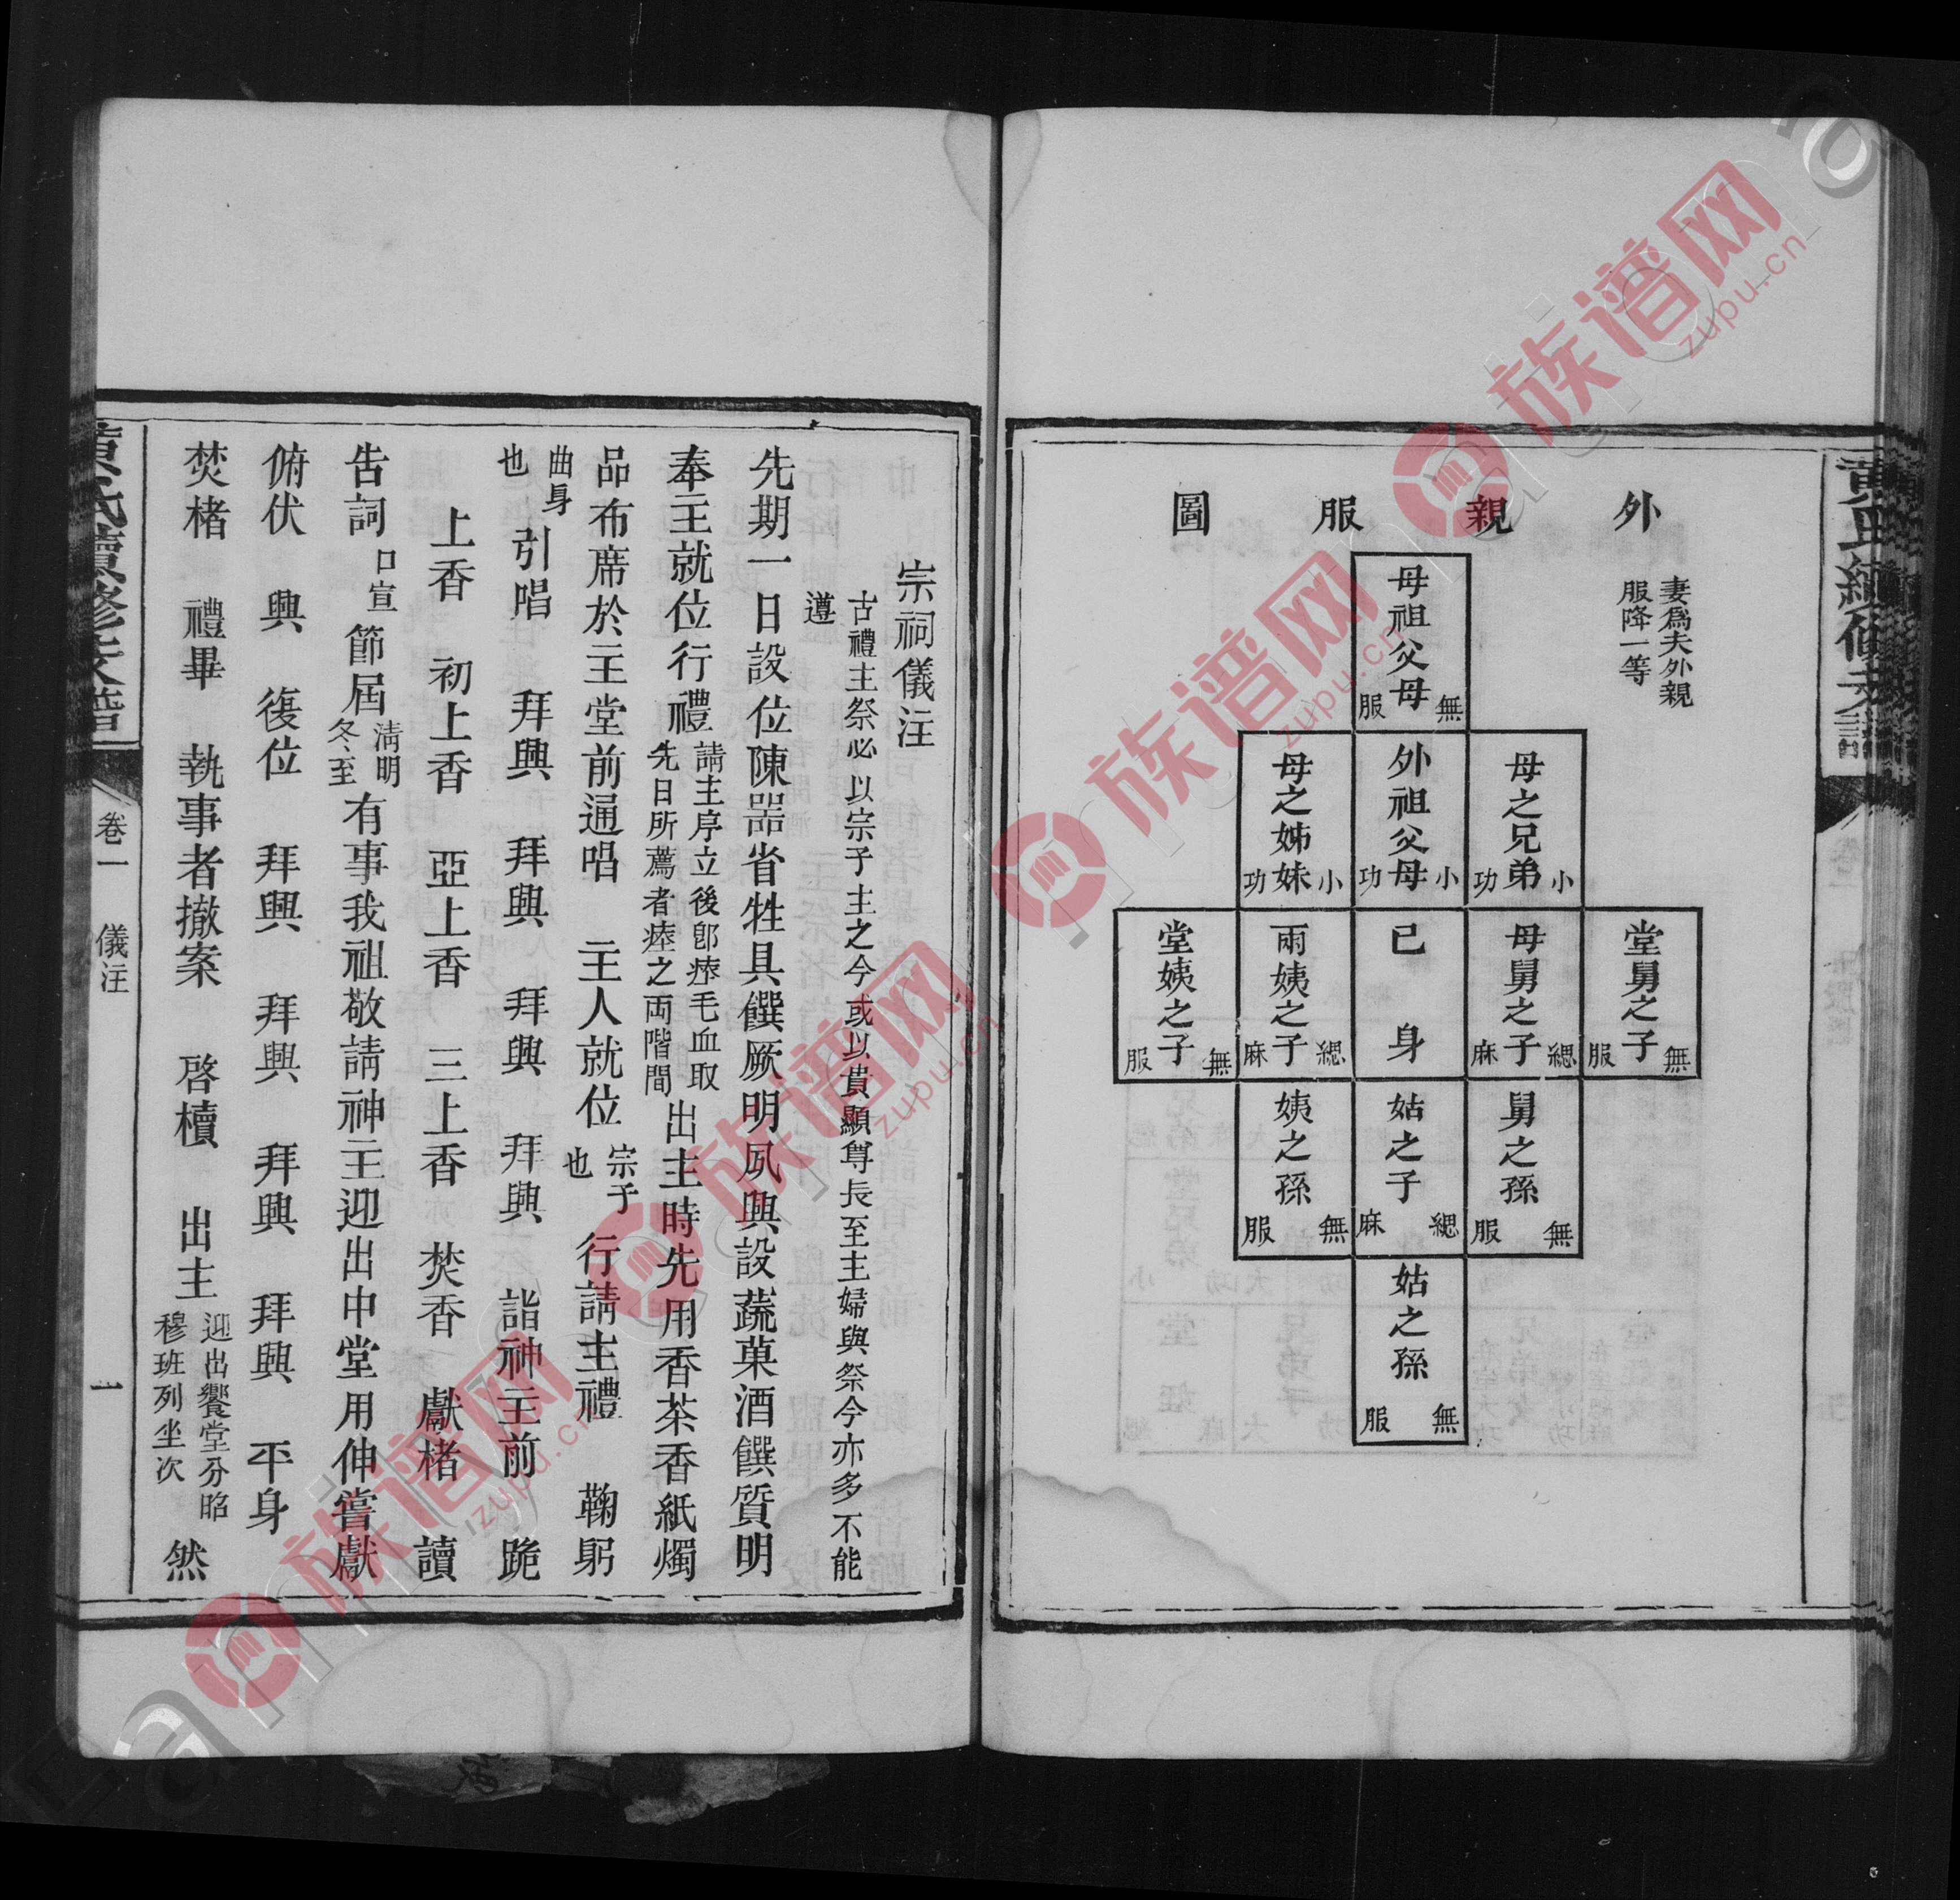 黃氏續修支譜
外親服圖
妻爲夫外親
服降一等
母祖父母 無服
母之兄弟 小功
外祖父母 小功
母之姊妹 小功
堂舅之子 無服
母舅之子 緦麻
己身
兩姨之子 緦麻
堂姨之子 無服
舅之孫 無服
姑之子 緦麻
姨之孫 無服
姑之孫 無服
宗祠儀注
古禮主祭必以宗子主之今或以貴顯尊長至主婦與祭今亦多不能
遵
先期一日設位陳器省牲具饌厥明夙興設蔬菓酒饌質明
奉主就位行禮請主序立後卽瘞毛血取先日所薦者瘞之両階間出主時先用香茶香紙燭
品布席於主堂前通唱 主人就位宗子也 行請主禮 鞠躬
曲身也引唱 拜興 拜興 拜興 拜興 詣神主前 跪
上香 初上香 亞上香 三上香 焚香 獻楮 讀
告詞口宣節屆淸明冬至有事我祖敬請神主迎出中堂用伸嘗獻
俯伏 興 復位 拜興 拜興 拜興 拜興 平身
焚楮 禮畢 執事者撤案 啓櫝 出主迎出饗堂分昭穆班列坐次 然
黃氏續修支譜
卷一 儀注
一
族谱网
zupu.cn
族谱网
zupu.cn
族谱网
zupu.cn
族谱网
zupu.cn